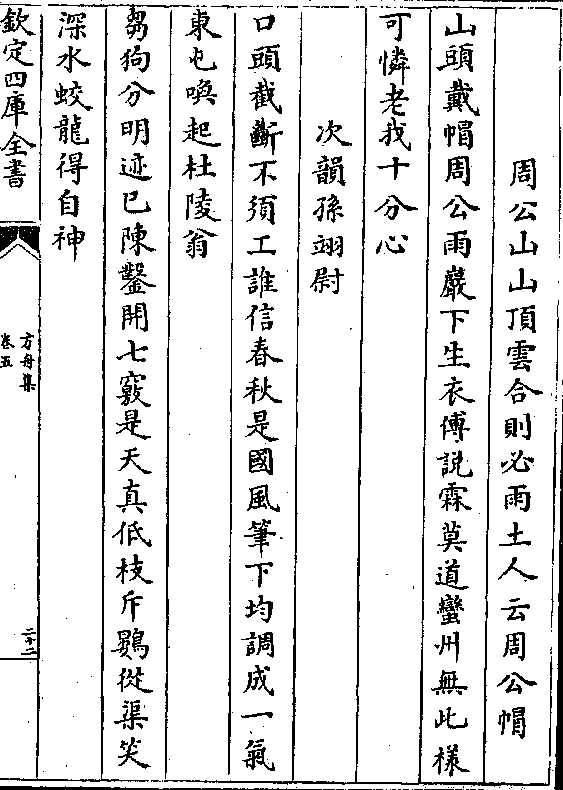 周公山山頂雲合則必雨土人云周公帽
山頭戴帽周公雨巖下生衣傅説霖莫道蠻州無此様
可憐老我十分心
次韻孫翊尉
口頭截斷不須工誰信春秋是國風筆下均調成一氣
東屯喚起杜陵翁
芻狗分明迹已陳鑿開七竅是天真低枝斥鷃從渠笑
深水蛟龍得自神
欽定四庫全書
方舟集
卷五
二十二